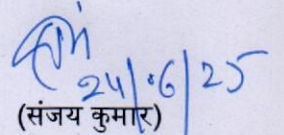 24/06/25
(संजय कुमार)